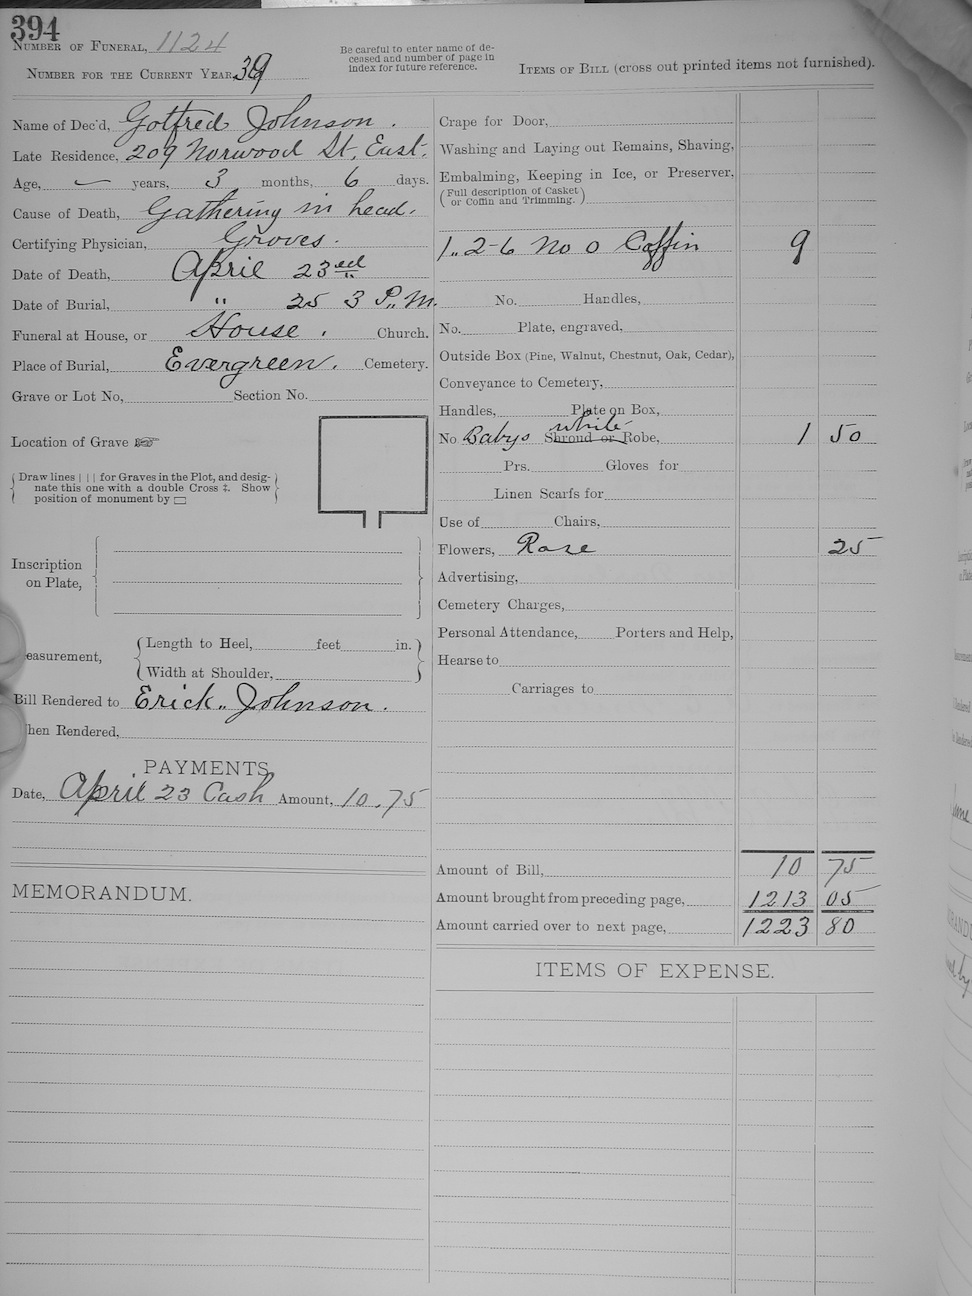 394
NUMBER OF FUNERAL, 1124
NUMBER FOR THE CURRENT YEAR, 39
Be careful to enter name of de-
ceased and number of page in
index for future reference.
ITEMS OF BILL (cross out printed items not furnished).
Name of Dec'd, Gotfred Johnson.
Late Residence, 209 Norwood St, East.
Age, — years, 3 months, 6 days.
Cause of Death, Gathering in head.
Certifying Physician, Groves.
Date of Death, April 23rd
Date of Burial, " 25 3 P.M.
Funeral at House, or House. Church.
Place of Burial, Evergreen. Cemetery.
Grave or Lot No, Section No.
Location of Grave ☞
Draw lines | | | for Graves in the Plot, and desig-
nate this one with a double Cross ‡. Show
position of monument by ▭
Inscription
on Plate,
easurement,
Length to Heel, feet in.
Width at Shoulder,
Bill Rendered to Erick. Johnson.
hen Rendered,
PAYMENTS.
Date, April 23 Cash Amount, 10.75
MEMORANDUM.
Crape for Door,
Washing and Laying out Remains, Shaving,
Embalming, Keeping in Ice, or Preserver,
(Full description of Casket
or Coffin and Trimming.)
1.. 2-6 No 0 Coffin 9
No. Handles,
No. Plate, engraved,
Outside Box (Pine, Walnut, Chestnut, Oak, Cedar),
Conveyance to Cemetery,
Handles, Plate on Box,
white
No Babys Shroud or Robe, 1 50
Prs. Gloves for
Linen Scarfs for
Use of Chairs,
Flowers, Rose 25
Advertising,
Cemetery Charges,
Personal Attendance, Porters and Help,
Hearse to
Carriages to
Amount of Bill, 10 75
Amount brought from preceding page, 1213 05
Amount carried over to next page, 1223 80
ITEMS OF EXPENSE.